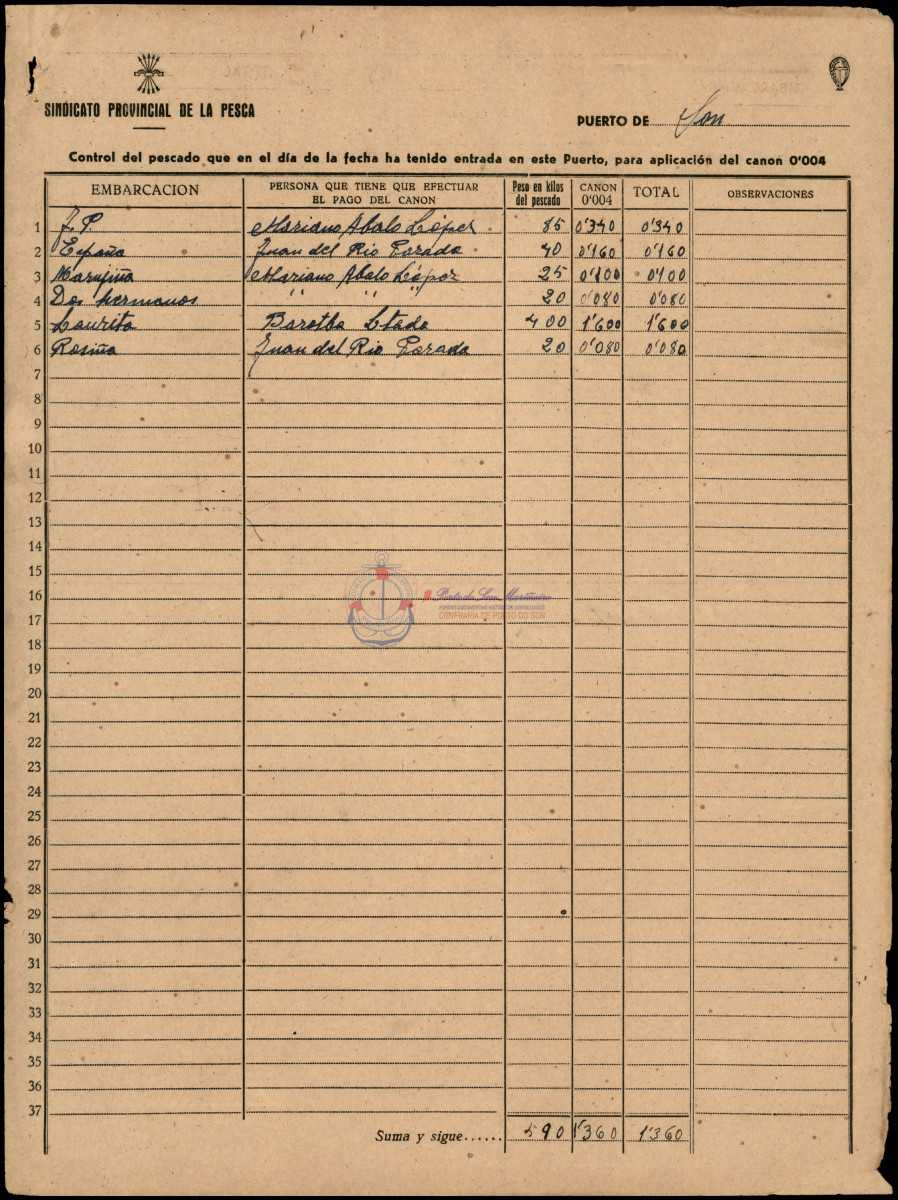 SINDICATO PROVINCIAL DE LA PESCA
PUERTO DE Son
Control del pescado que en el día de la fecha ha tenido entrada en este Puerto, para aplicación del canon 0'004
EMBARCACION PERSONA QUE TIENE QUE EFECTUAR EL PAGO DEL CANON Peso en kilos del pescado CANON 0'004 TOTAL OBSERVACIONES
1 J. P. Mariano Abalo López 85 0'340 0'340
2 España Juan del Rio Parada 40 0'160 0'160
3 Marujiña Mariano Abalo López 25 0'100 0'100
4 Dos hermanos " " " 20 0'080 0'080
5 Laurita 400 1'600 1'600
6 Rosiña Juan del Rio Parada 20 0'080 0'080
7
8
9
10
11
12
13
14
15
16
17
18
19
20
21
22
23
24
25
26
27
28
29
30
31
32
33
34
35
36
37
Porto do Son Mariñeiro
FONDOS DOCUMENTAIS HISTÓRICOS DIXITALIZADOS
CONFRARÍA DE PORTO DO SON
Suma y sigue...... 590 1'360 1'360